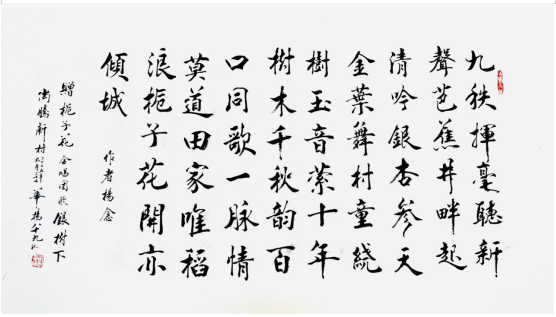 九秩揮毫聽新
聲芭蕉井畔起
清吟銀杏參天
金葉舞村童繞
樹玉音縈十年
樹木千秋韵百
口同歌一脉情
莫道田家唯稻
浪栀子花開亦
傾城
作者楊念
贈栀子花合唱團歌銀樹下
新村